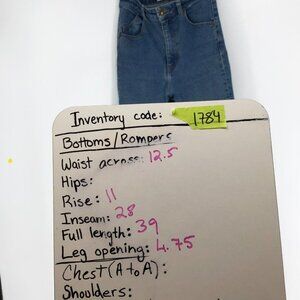 Inventory code: 1784
Bottoms/Rompers
Waist across: 12.5
Hips:
Rise: 11
Inseam: 28
Full length: 39
Leg opening: 4.75
Chest (A to A):
Shoulders: